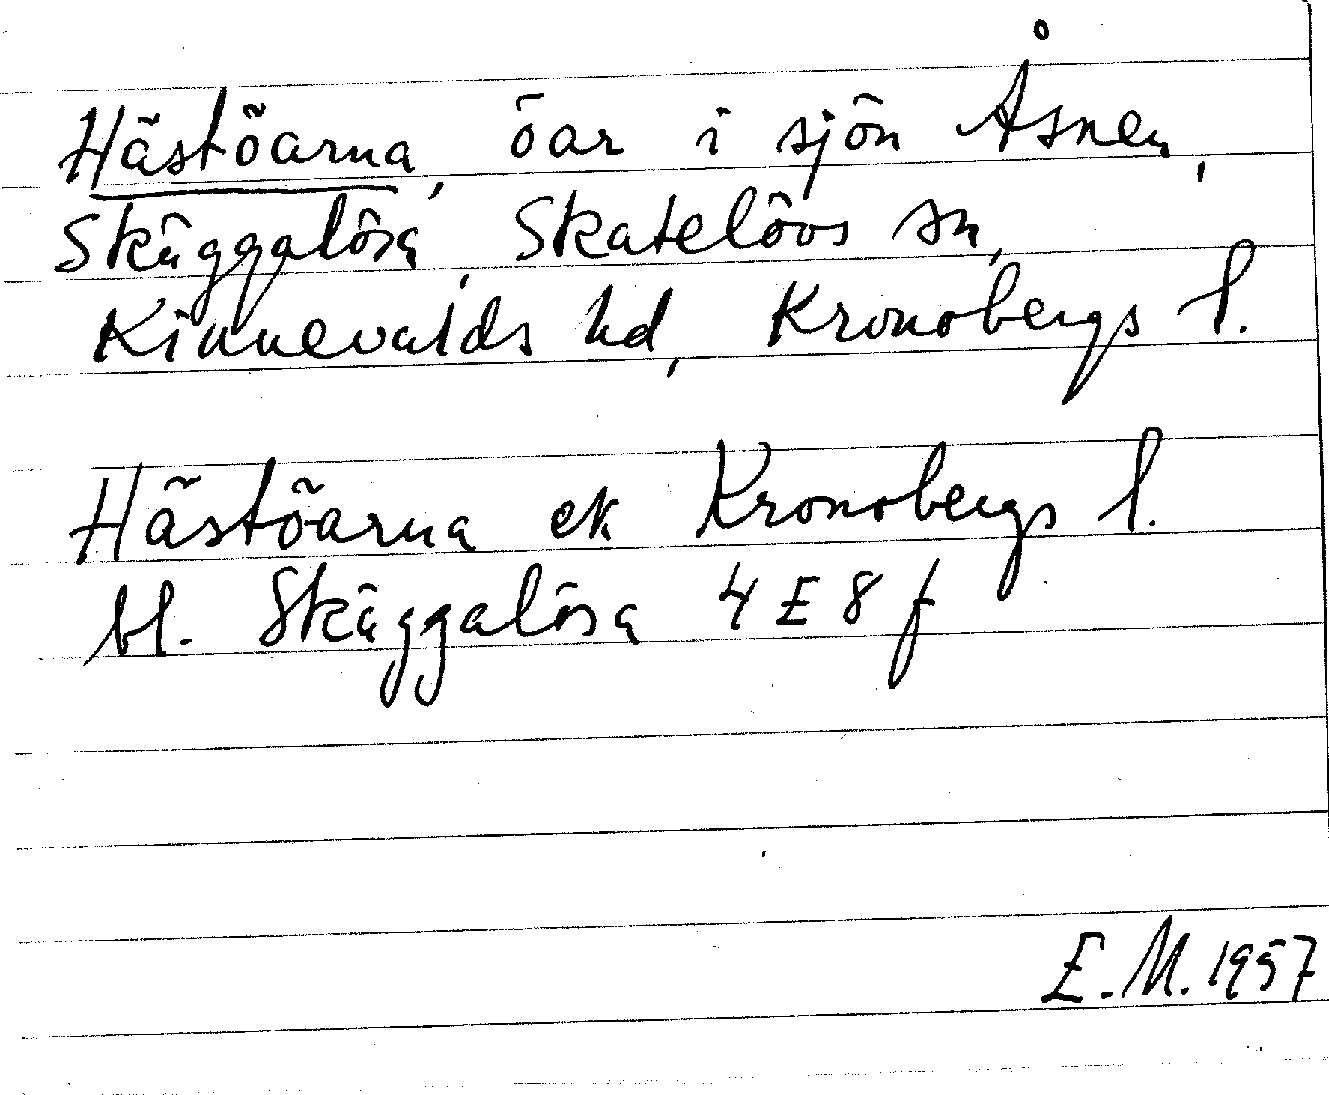 Hästöarna, öar i sjön Åsnen,
Skäggalösa, Skatelövs sn,
Kinnevalds hd, Kronobergs l.
Hästöarna ek Kronobergs l.
bl. Skäggalösa 4 E 8 f
E. M. 1957